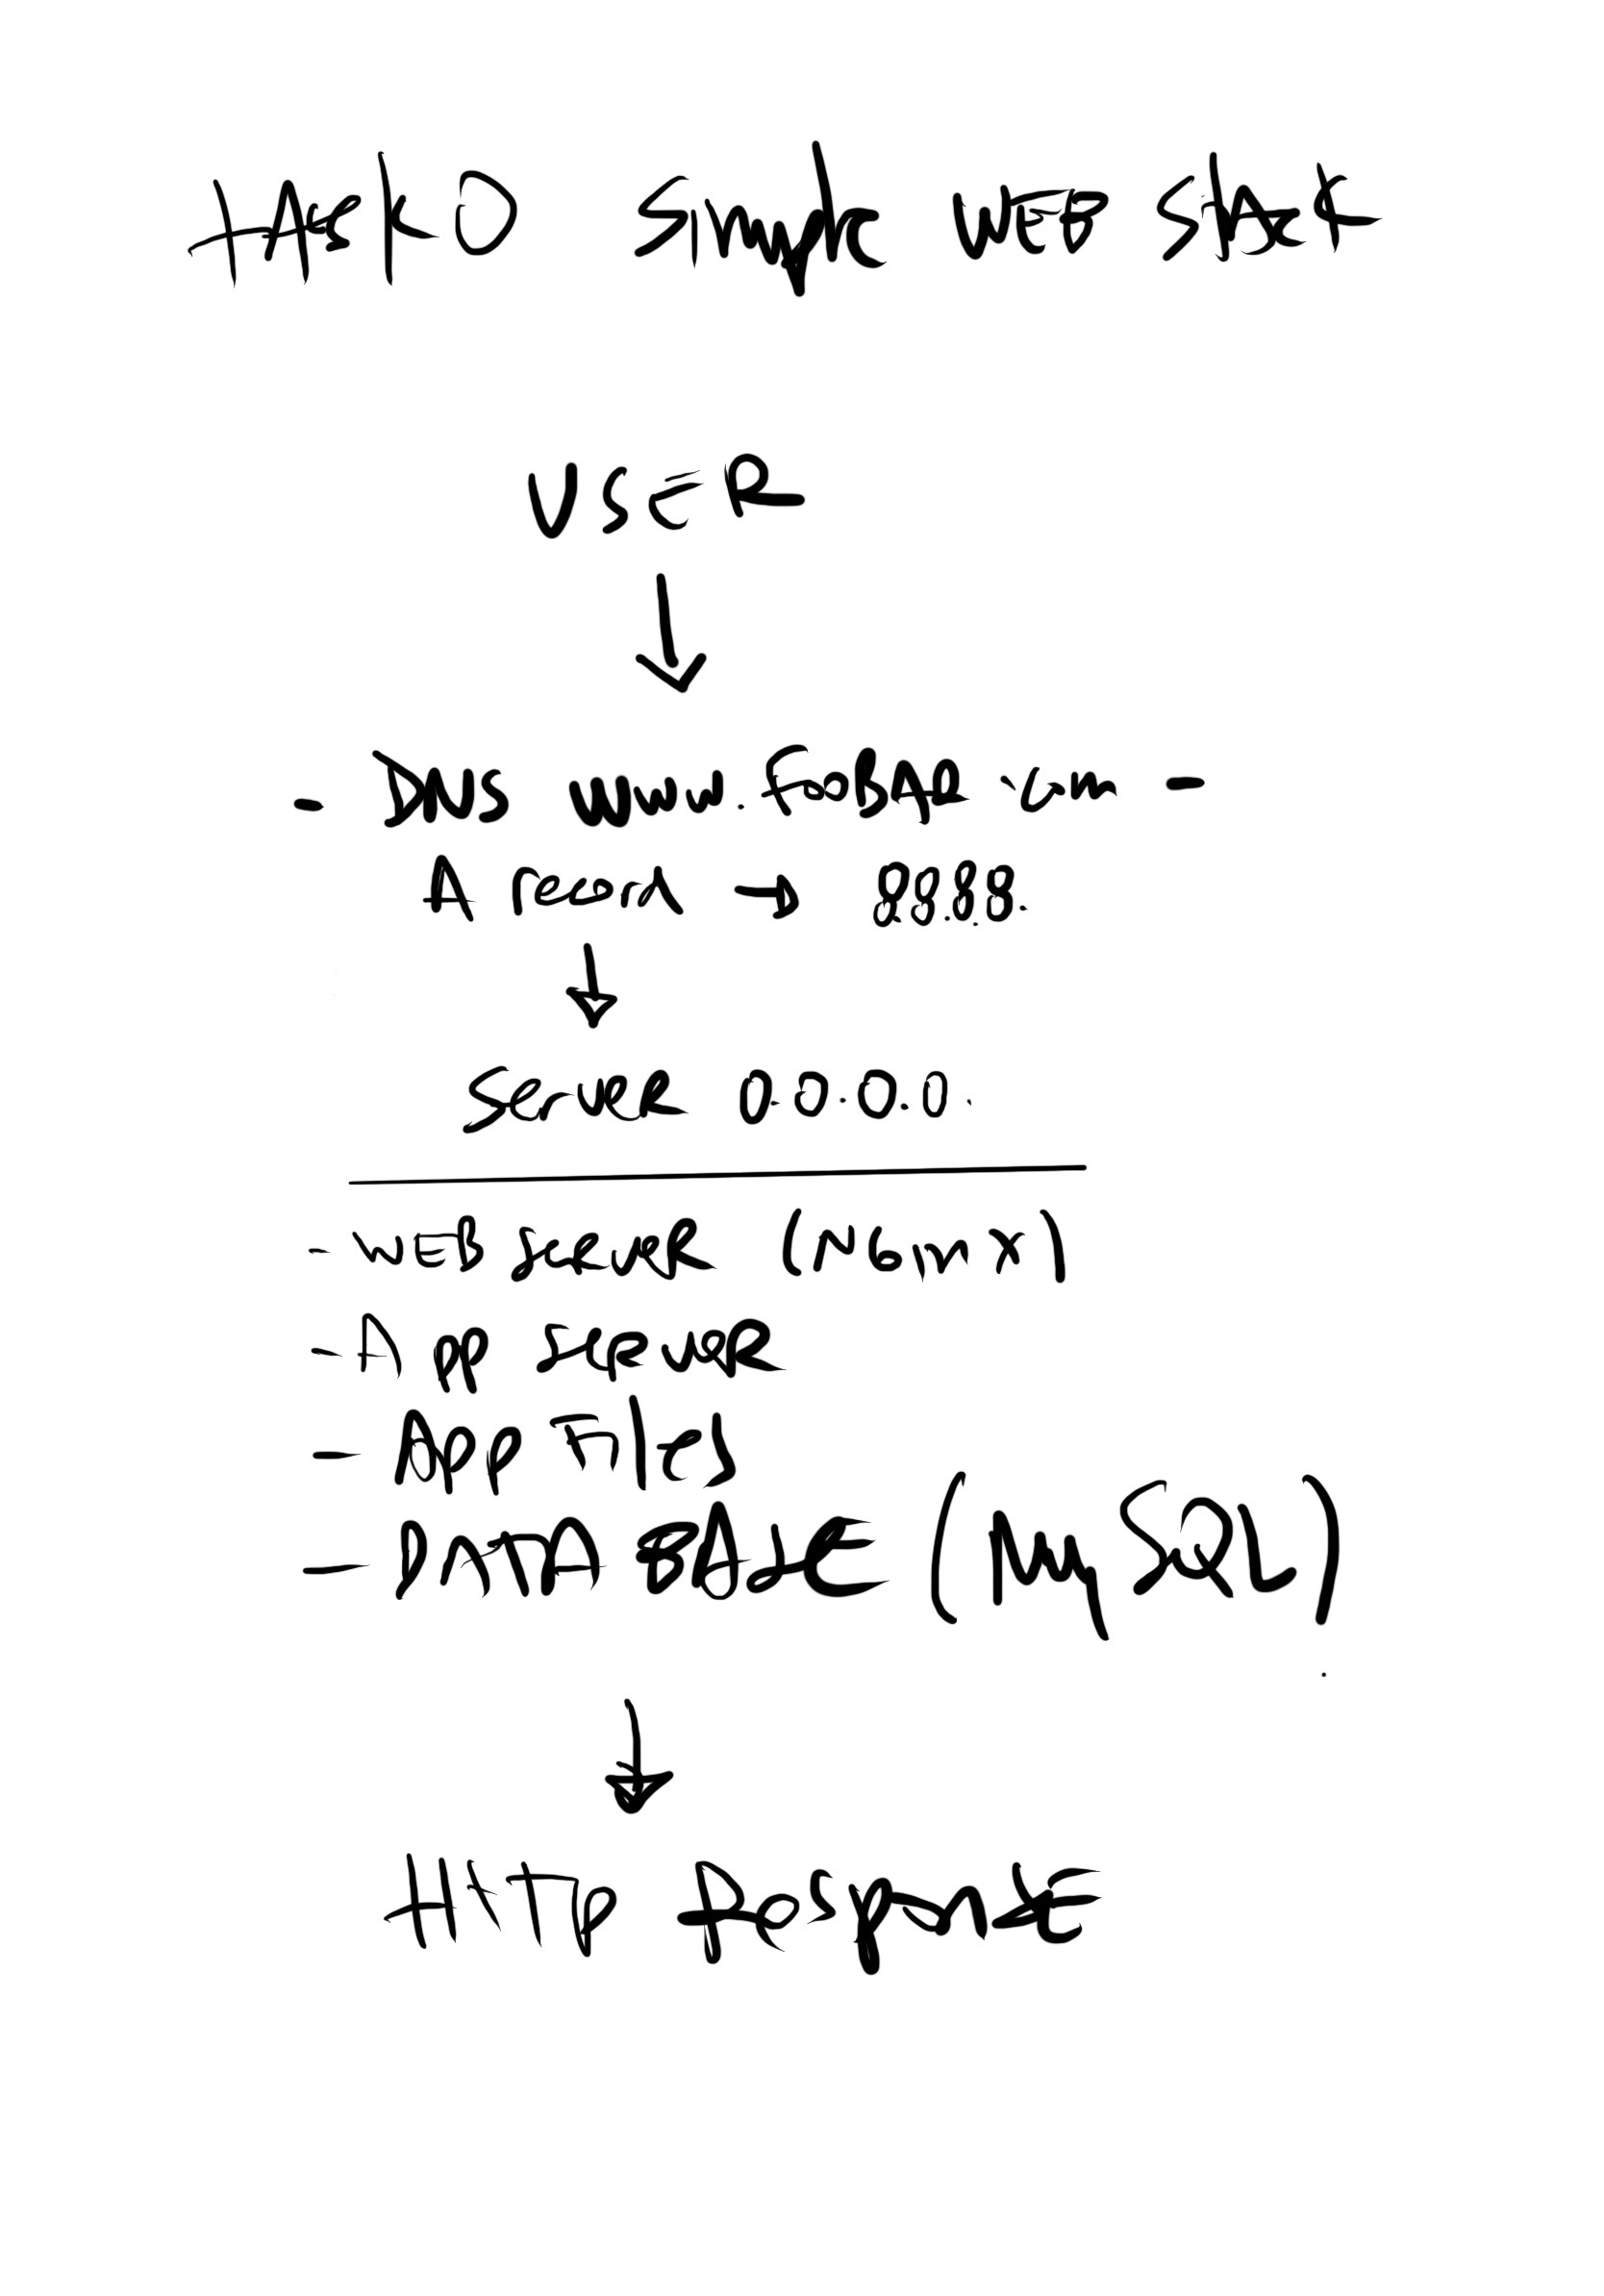 TASK 0 Simple WEB stack
USER
- DNS www.FooBAR.com -
A record → 8.8.8.8.
Server 0.0.0.0.
- WEB Server (NGinx)
- App Server
- App Files
- DATA BASE (MySQL)
HTTP Response